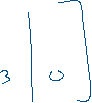 3 | 0 ]